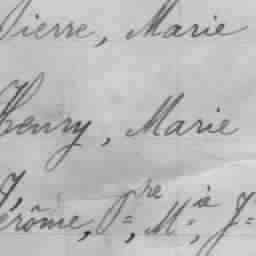 Pierre, Marie
Henry, Marie
Jérôme, P=re, M=ie, J=